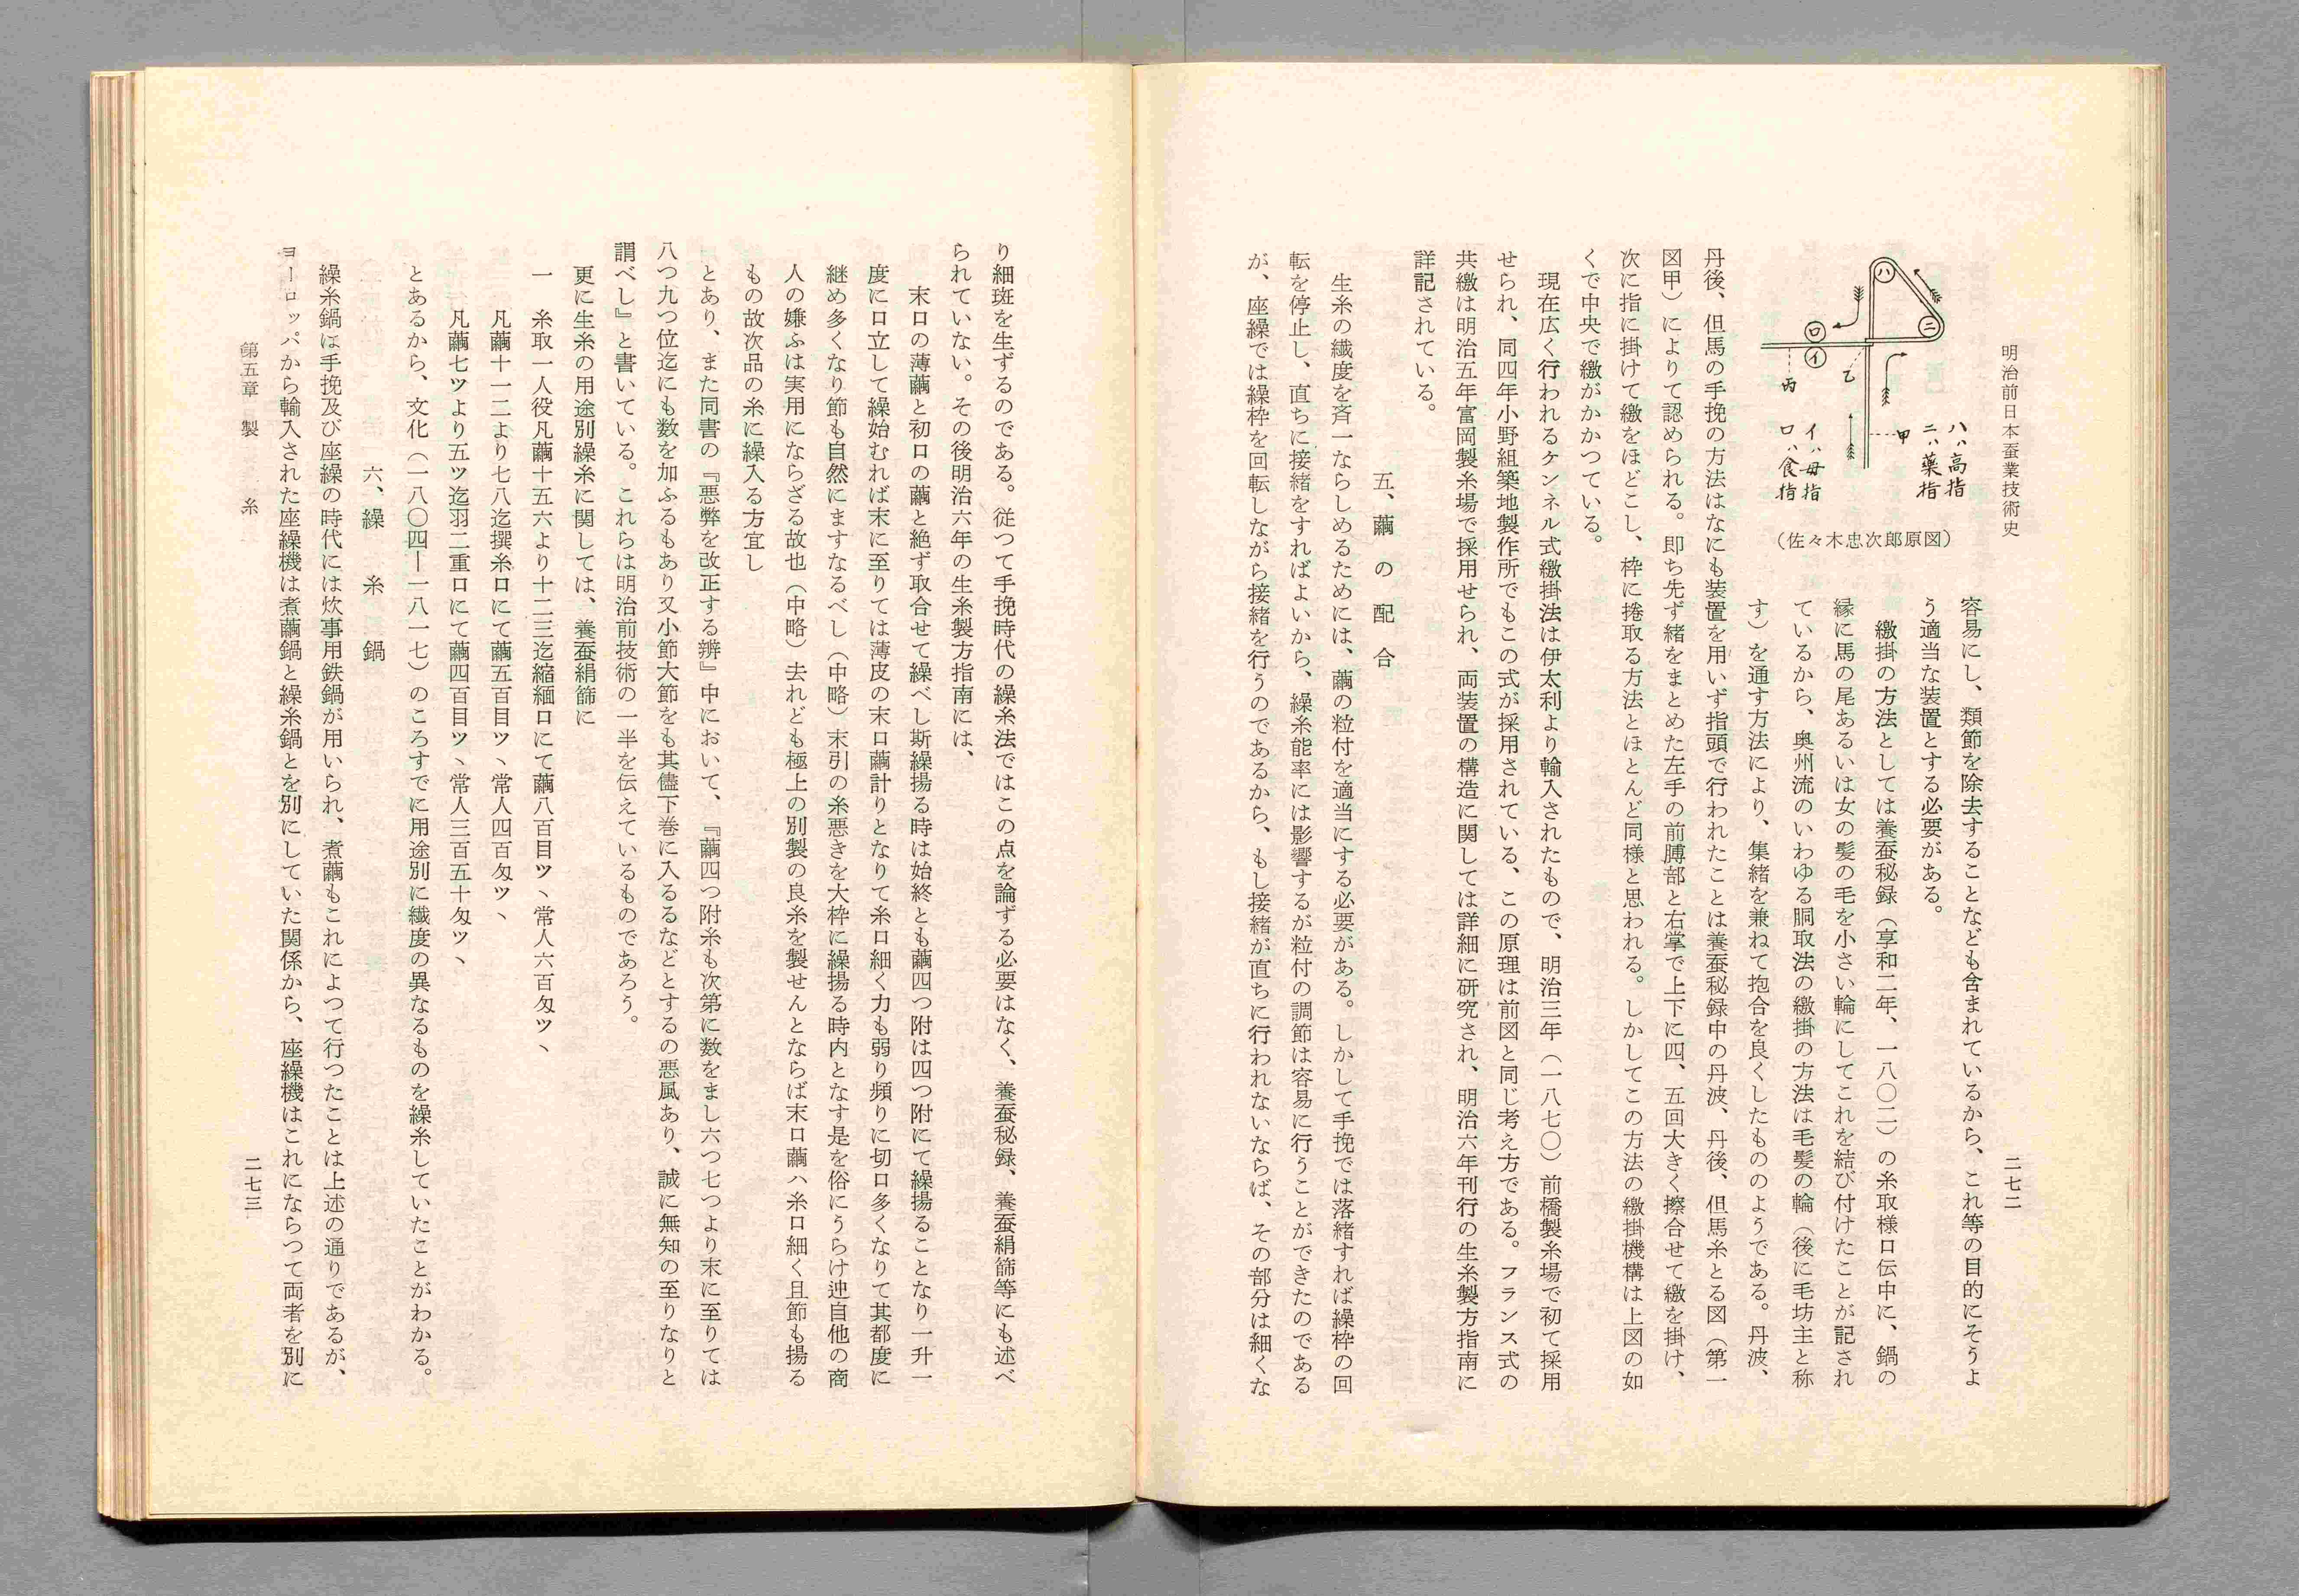 明治前日本蚕業技術史
二七二
ハ
ニ
ロ
イ
乙
丙
甲
ハ、高指
ニ、薬指
イ、母指
ロ、食指
(佐々木忠次郎原図)
容易にし、類節を除去することなども含まれているから、これ等の目的にそうよ
う適当な装置とする必要がある。
繳掛の方法としては養蚕秘録(享和二年、一八〇二)の糸取様口伝中に、鍋の
縁に馬の尾あるいは女の髪の毛を小さい輪にしてこれを結び付けたことが記され
ているから、奥州流のいわゆる胴取法の繳掛の方法は毛髪の輪(後に毛坊主と称
す)を通す方法により、集緒を兼ねて抱合を良くしたもののようである。丹波、
丹後、但馬の手挽の方法はなにも装置を用いず指頭で行われたことは養蚕秘録中の丹波、丹後、但馬糸とる図(第一
図甲)によりて認められる。即ち先ず緒をまとめた左手の前膊部と右掌で上下に四、五回大きく擦合せて繳を掛け、
次に指に掛けて繳をほどこし、枠に捲取る方法とほとんど同様と思われる。しかしてこの方法の繳掛機構は上図の如
くで中央で繳がかかつている。
現在広く行われるケンネル式繳掛法は伊太利より輸入されたもので、明治三年(一八七〇)前橋製糸場で初て採用
せられ、同四年小野組築地製作所でもこの式が採用されている、この原理は前図と同じ考え方である。フランス式の
共繳は明治五年富岡製糸場で採用せられ、両装置の構造に関しては詳細に研究され、明治六年刊行の生糸製方指南に
詳記されている。
五、繭の配合
生糸の繊度を斉一ならしめるためには、繭の粒付を適当にする必要がある。しかして手挽では落緒すれば繰枠の回
転を停止し、直ちに接緒をすればよいから、繰糸能率には影響するが粒付の調節は容易に行うことができたのである
が、座繰では繰枠を回転しながら接緒を行うのであるから、もし接緒が直ちに行われないならば、その部分は細くな
り細斑を生ずるのである。従つて手挽時代の繰糸法ではこの点を論ずる必要はなく、養蚕秘録、養蚕絹篩等にも述べ
られていない。その後明治六年の生糸製方指南には、
末口の薄繭と初口の繭と絶ず取合せて繰べし斯繰揚る時は始終とも繭四つ附は四つ附にて繰揚ることなり一升一
度に口立して繰始むれば末に至りては薄皮の末口繭計りとなりて糸口細く力も弱り頻りに切口多くなりて其都度に
継め多くなり節も自然にますなるべし(中略)末引の糸悪きを大枠に繰揚る時内となす是を俗にうらけ迚自他の商
人の嫌ふは実用にならざる故也(中略)去れども極上の別製の良糸を製せんとならば末口繭ハ糸口細く且節も揚る
もの故次品の糸に繰入る方宜し
とあり、また同書の『悪弊を改正する辨』中において、『繭四つ附糸も次第に数をまし六つ七つより末に至りては
八つ九つ位迄にも数を加ふるもあり又小節大節をも其儘下巻に入るるなどとするの悪風あり、誠に無知の至りなりと
謂べし』と書いている。これらは明治前技術の一半を伝えているものであろう。
更に生糸の用途別繰糸に関しては、養蚕絹篩に
一 糸取一人役凡繭十五六より十二三迄縮緬口にて繭八百目ツヽ常人六百匁ツヽ
凡繭十一二より七八迄撰糸口にて繭五百目ツヽ常人四百匁ツヽ
凡繭七ツより五ツ迄羽二重口にて繭四百目ツヽ常人三百五十匁ツヽ
とあるから、文化(一八〇四―一八一七)のころすでに用途別に繊度の異なるものを繰糸していたことがわかる。
六、繰糸鍋
繰糸鍋は手挽及び座繰の時代には炊事用鉄鍋が用いられ、煮繭もこれによつて行つたことは上述の通りであるが、
ヨーロッパから輸入された座繰機は煮繭鍋と繰糸鍋とを別にしていた関係から、座繰機はこれにならつて両者を別に
第五章 製糸
二七三